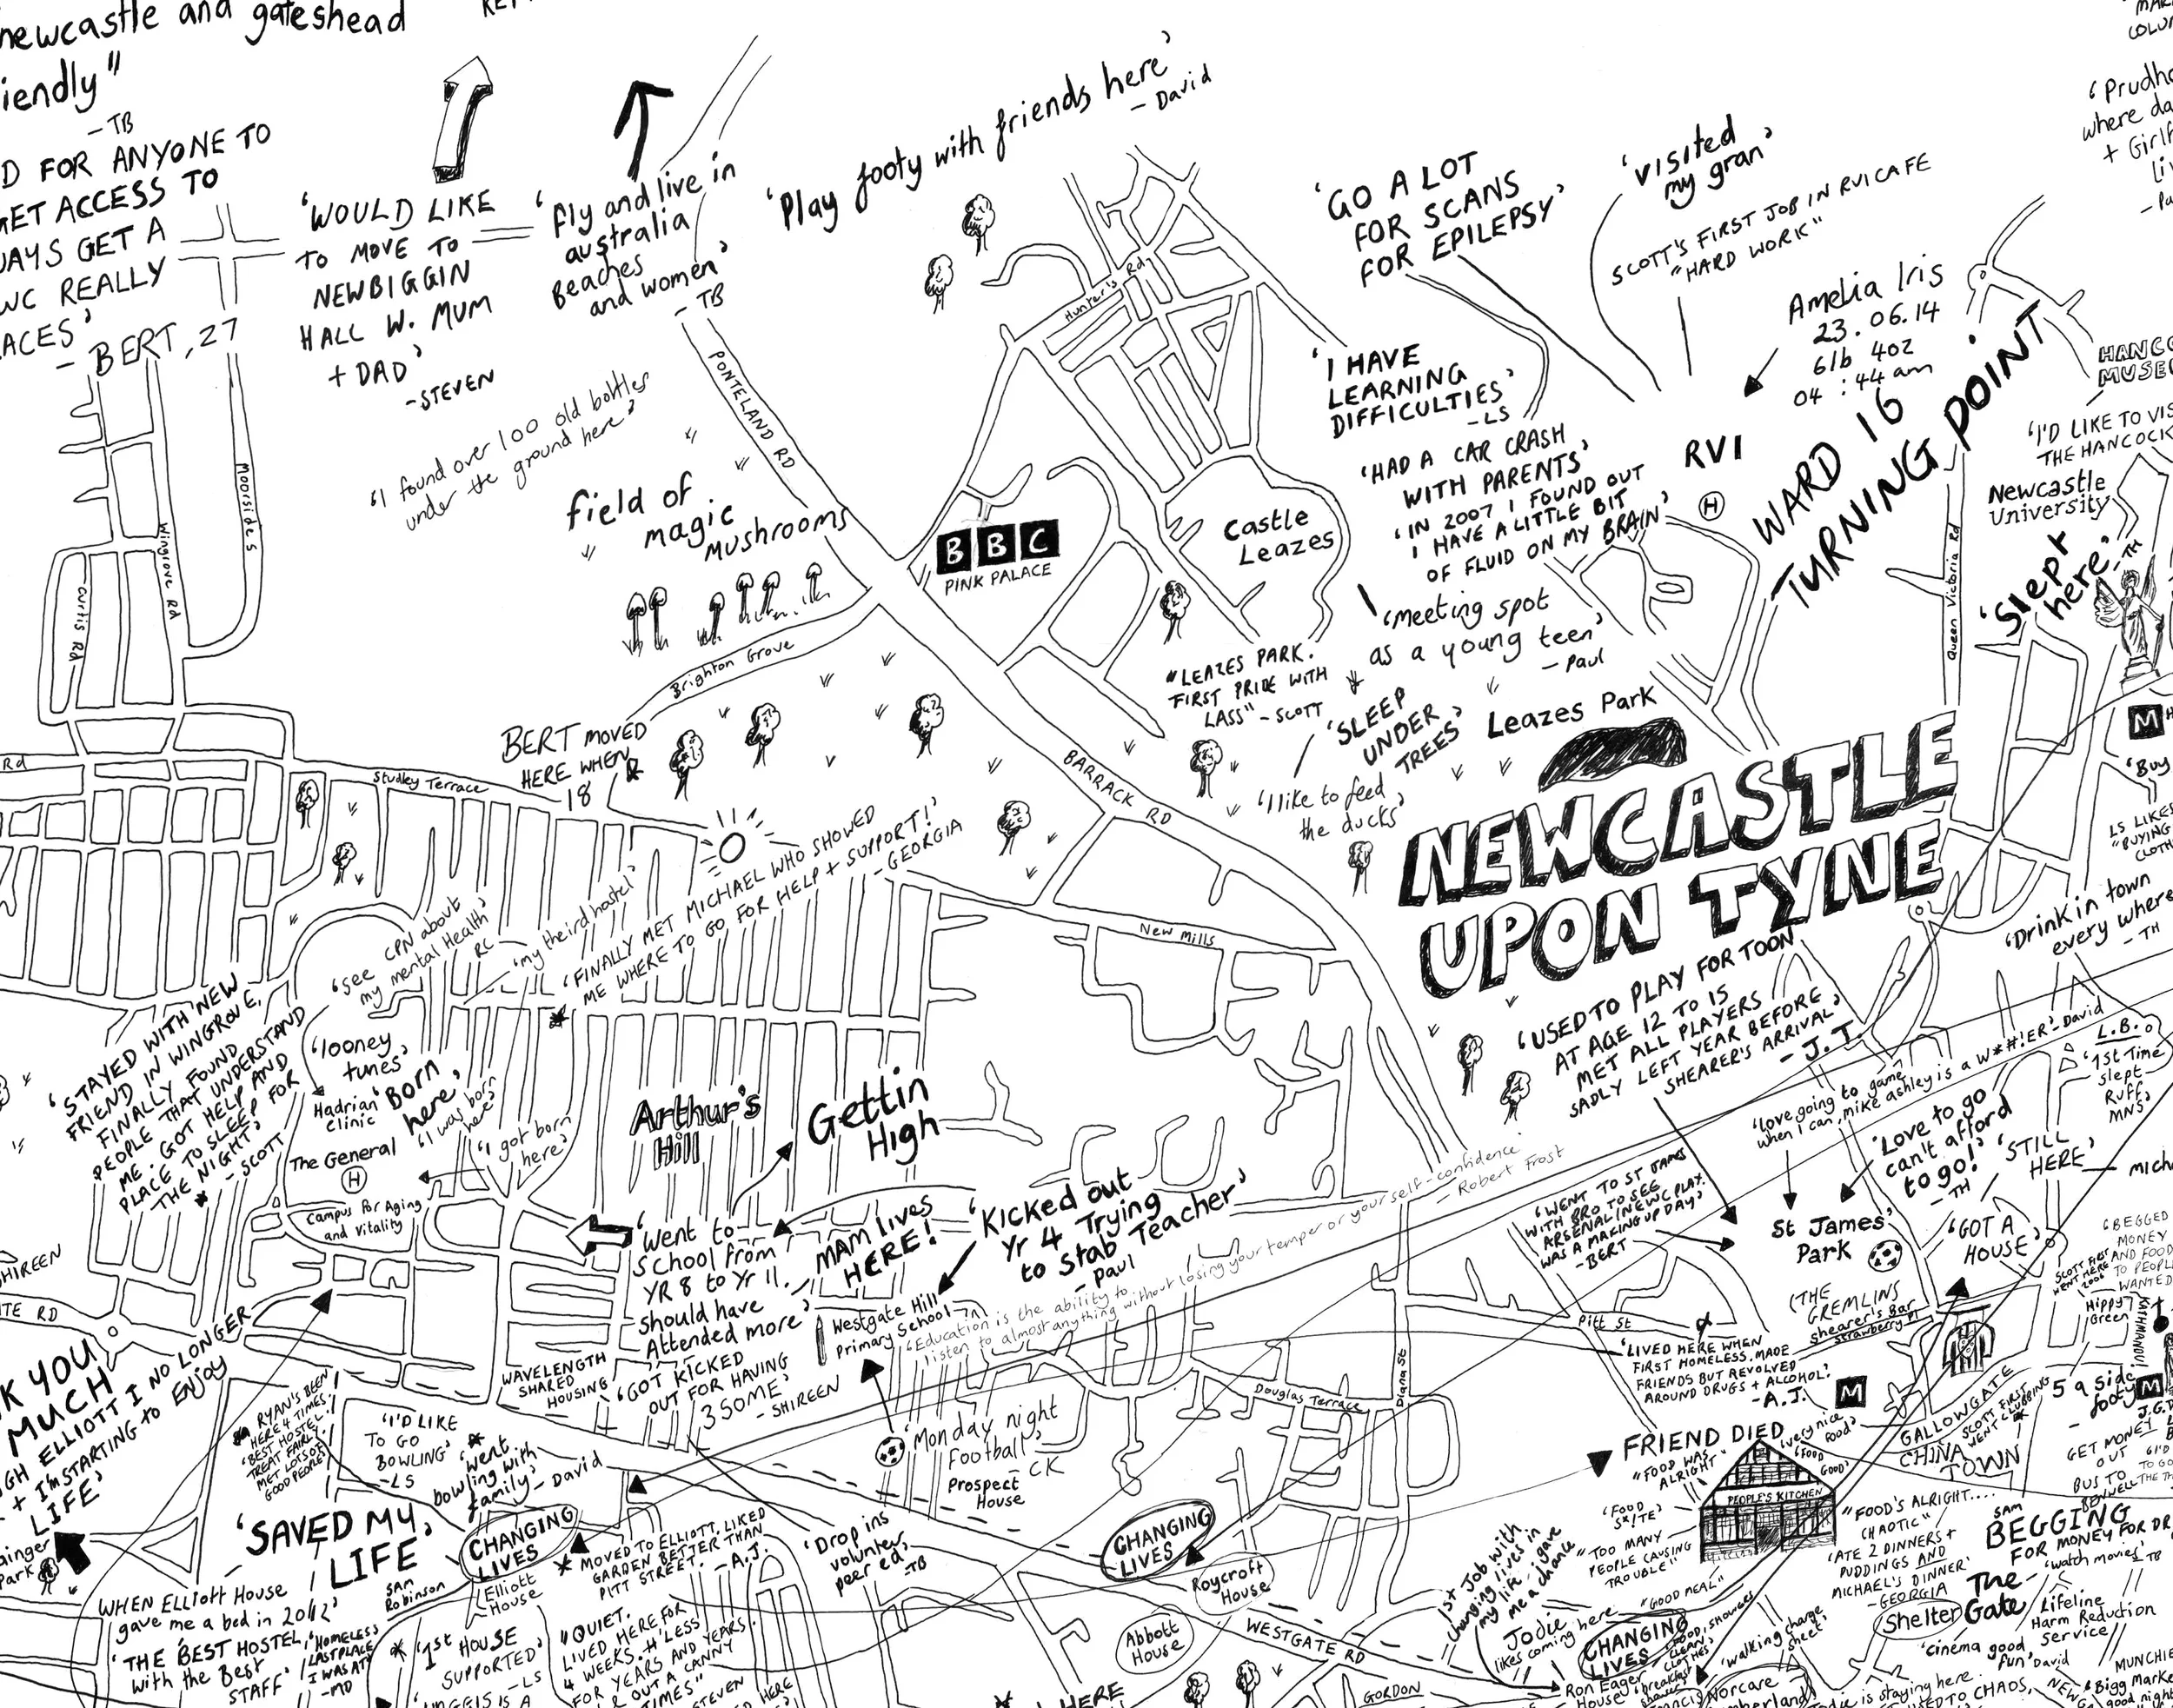 newcastle and gateshead
iendly"
- TB
D FOR ANYONE TO
GET ACCESS TO
WAYS GET A
WC REALLY
ACES'
- BERT, 27
'WOULD LIKE
TO MOVE TO
NEWBIGGIN
HALL W. MUM
+ DAD'
- STEVEN
'fly and live in
australia
Beaches
and women'
- TB
'Play footy with friends here'
- David
'GO A LOT
FOR SCANS
FOR EPILEPSY'
'visited
my gran'
SCOTT'S FIRST JOB IN RVI CAFE
"HARD WORK"
Amelia Iris
23.06.14
6lb 4oz
04:44am
'Prudho
where da
+ Girlf
liv
HANCO
MUSEU
'I'D LIKE TO VIS
THE HANCOCK
Newcastle
University
'Slept
here'
- TH
WARD 16
TURNING POINT
RVI
H
'I HAVE
LEARNING
DIFFICULTIES'
- LS
'HAD A CAR CRASH
WITH PARENTS'
'IN 2007 I FOUND OUT
I HAVE A LITTLE BIT
OF FLUID ON MY BRAIN'
'meeting spot
as a young teen'
- Paul
PONTELAND RD
Hunter's Rd
Moorside S
Wingrove Rd
Curtis Rd
'I found over 100 old bottles
under the ground here'
field of
magic
mushrooms
BBC
PINK PALACE
Castle
Leazes
Queen Victoria Rd
Brighton Grove
"LEAZES PARK.
FIRST PRIDE WITH
LASS" - SCOTT
'SLEEP
UNDER
TREES'
Leazes Park
'I like to feed
the ducks'
BERT MOVED
HERE WHEN
18
Rd
Studley Terrace
BARRACK RD
NEWCASTLE
UPON TYNE
M
'Buy
LS LIKES
"BUYING
CLOTH
'Drink in town
every where
- TH
'FINALLY MET MICHAEL WHO SHOWED
ME WHERE TO GO FOR HELP + SUPPORT!'
- GEORGIA
'my theird hostel'
'see CPN about
my mental Health'
RC
New Mills
'STAYED WITH NEW
FRIEND IN WINGROVE,
FINALLY FOUND
PEOPLE THAT UNDERSTAND
ME. GOT HELP AND
PLACE TO SLEEP FOR
THE NIGHT'
- SCOTT
'looney
tunes'
Hadrian
Clinic
'Born
here'
'I was born
here'
'I got born
here'
The General
H
Campus for Aging
and Vitality
Arthur's
Hill
Gettin
High
'USED TO PLAY FOR TOON
AT AGE 12 TO 15
MET ALL PLAYERS
SADLY LEFT YEAR BEFORE
SHEARER'S ARRIVAL'
- J.T.
'love going to game
when I can, mike ashley is a W*#!ER' - David
'Love to go
can't afford
to go!'
- TH
L.B.
'1st Time
slept
Ruff
MNS'
'STILL
HERE'
'GOT A
HOUSE'
St James'
Park
'WENT TO ST JAMES
WITH BRO TO SEE
ARSENAL/NEWC PLAY.
WAS A MAKING UP DAY'
- BERT
'Went to
School from
YR 8 to Yr 11.
should have
Attended more'
MAM lives
HERE!
'Kicked out
Yr 4 Trying
to Stab Teacher'
- Paul
Westgate Hill
Primary School
'Education is the ability to
listen to almost anything without losing your temper or your self-confidence
- Robert Frost
'BEGGED
MONEY
AND FOOD
TO PEOPLE
WANTED
Hippy
Green
KATHMANDU
(THE
GREMLINS
Shearer's Bar
Strawberry Pl
Pitt St
'LIVED HERE WHEN
FIRST HOMELESS. MADE
FRIENDS BUT REVOLVED
AROUND DRUGS + ALCOHOL!'
- A.J.
M
M
GALLOWGATE
CHINA
TOWN
SCOTT FIRST
WENT CLUBBING
5 a side
footy
SHIREEN
TE RD
K YOU
MUCH
GH ELLIOTT I NO LONGER
+ I'm STARTING to Enjoy
LIFE'
ainger
Park
WAVELENGTH
SHARED
HOUSING
'GOT KICKED
OUT FOR HAVING
3SOME'
- SHIREEN
RYAN'S BEEN
HERE 4 TIMES
'BEST HOSTEL'.
TREAT FAIRLY.
MET LOTS OF
GOOD PEOPLE
'I'D LIKE
TO GO
BOWLING'
- LS
'went
bowling with
family' - David
'Monday night
Football'
- CK
Prospect
House
Douglas Terrace
Diana St
FRIEND DIED
"FOOD WAS
ALRIGHT"
'very nice
food'
'FOOD
GOOD'
PEOPLE'S KITCHEN
'FOOD
S*!TE'
"TOO MANY
PEOPLE CAUSING
TROUBLE"
"FOOD'S ALRIGHT....
CHAOTIC"
'ATE 2 DINNERS +
PUDDINGS AND
MICHAEL'S DINNER'
- GEORGIA
GET MONEY
OUT
BUS TO
SAM
BEGGING
FOR MONEY FOR DR
'watch movies'
- TB
The
Gate
Shelter
'cinema good
fun' David
Lifeline
Harm Reduction
Service
'SAVED MY
LIFE'
SAM
Robinson
CHANGING
LIVES
Elliott
House
WHEN Elliott House
gave me a bed in 2012'
'THE BEST HOSTEL
with the Best
STAFF'
'HOMELESS
LAST PLACE
I WAS AT'
- MD
'1st HOUSE
SUPPORTED'
- LS
MOVED TO ELLIOTT. LIKED
GARDEN BETTER THAN
PITT STREET.
- A.J.
"QUIET.
LIVED HERE FOR
4 WEEKS. H'LESS
FOR YEARS AND YEARS.
OUT A CANNY
TIMES"
STEVEN
'Drop ins
volunter
peer ed'
- TB
CHANGING
LIVES
Roycroft
House
Abbott
House
WESTGATE RD
GORDON
HERE
1st Job with
changing lives in
my life, i gave
me a chance
Jodie
likes coming here
"GOOD MEAL"
CHANGING
LIVES
Ron Eager
House
'walking charge
sheet'
Norcare
MUNCHIE